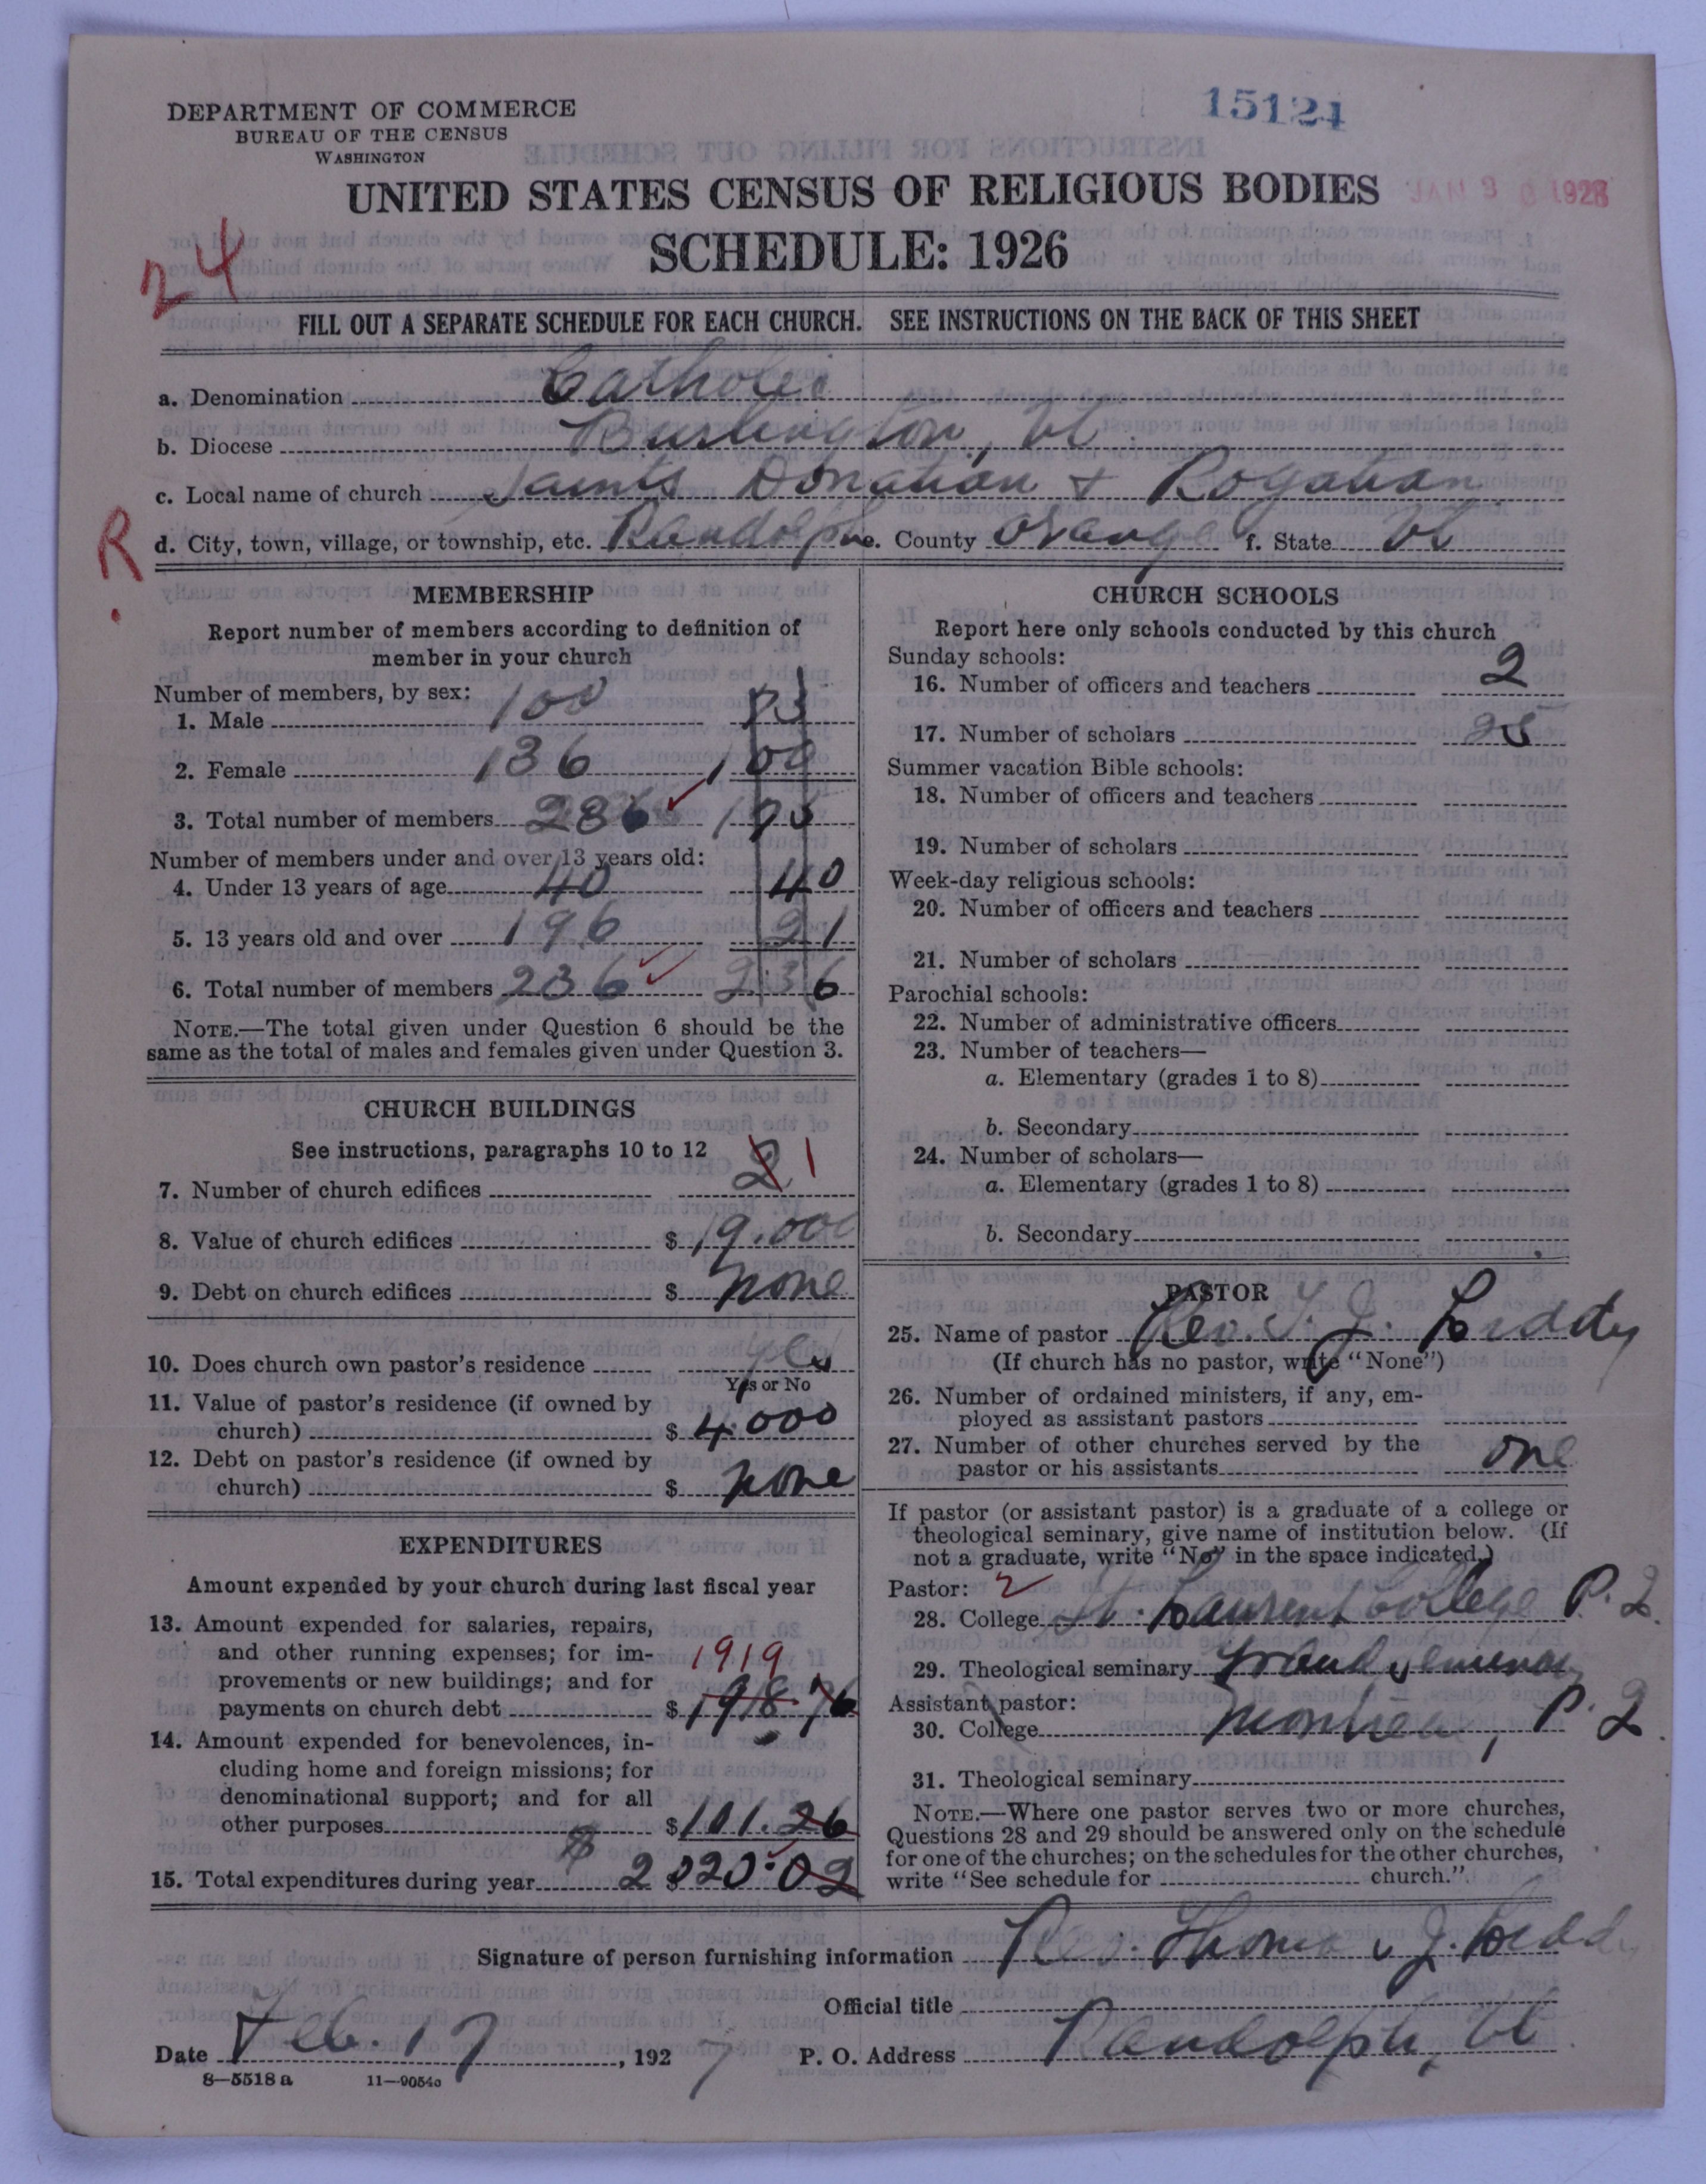 DEPARTMENT OF COMMERCE
BUREAU OF THE CENSUS
WASHINGTON
15124
UNITED STATES CENSUS OF RELIGIOUS BODIES
JAN 3 0 1928
SCHEDULE: 1926
24
FILL OUT A SEPARATE SCHEDULE FOR EACH CHURCH. SEE INSTRUCTIONS ON THE BACK OF THIS SHEET
a. Denomination Catholic
b. Diocese Burlington, Vt.
c. Local name of church Saints Donatian & Rogatian
R.
d. City, town, village, or township, etc. Randolph e. County Orange f. State Vt
MEMBERSHIP
Report number of members according to definition of
member in your church
Number of members, by sex:
1. Male 100
2. Female 136 100
3. Total number of members 236
Number of members under and over 13 years old:
4. Under 13 years of age 40 40
5. 13 years old and over 196
6. Total number of members 236 236
NOTE.—The total given under Question 6 should be the
same as the total of males and females given under Question 3.
CHURCH BUILDINGS
See instructions, paragraphs 10 to 12
7. Number of church edifices 2 1
8. Value of church edifices $ 19.000
9. Debt on church edifices $ none
10. Does church own pastor's residence yes
Yes or No
11. Value of pastor's residence (if owned by
church) $ 4.000
12. Debt on pastor's residence (if owned by
church) $ none
EXPENDITURES
Amount expended by your church during last fiscal year
13. Amount expended for salaries, repairs,
and other running expenses; for im-
provements or new buildings; and for
payments on church debt $ 1918 76
1919
14. Amount expended for benevolences, in-
cluding home and foreign missions; for
denominational support; and for all
other purposes $ 101.26
15. Total expenditures during year $ 2 $ 020.02
CHURCH SCHOOLS
Report here only schools conducted by this church
Sunday schools:
16. Number of officers and teachers 2
17. Number of scholars 25
Summer vacation Bible schools:
18. Number of officers and teachers
19. Number of scholars
Week-day religious schools:
20. Number of officers and teachers
21. Number of scholars
Parochial schools:
22. Number of administrative officers
23. Number of teachers—
a. Elementary (grades 1 to 8)
b. Secondary
24. Number of scholars—
a. Elementary (grades 1 to 8)
b. Secondary
PASTOR
25. Name of pastor Rev. T. J. Leddy
(If church has no pastor, write "None")
26. Number of ordained ministers, if any, em-
ployed as assistant pastors
27. Number of other churches served by the
pastor or his assistants one
If pastor (or assistant pastor) is a graduate of a college or
theological seminary, give name of institution below. (If
not a graduate, write "No" in the space indicated.)
Pastor: 2
28. College St. Laurent College P. Q.
29. Theological seminary Grand Seminary
Assistant pastor:
30. College Montreal, P. Q.
31. Theological seminary
NOTE.—Where one pastor serves two or more churches,
Questions 28 and 29 should be answered only on the schedule
for one of the churches; on the schedules for the other churches,
write "See schedule for church."
Signature of person furnishing information Rev. Thomas J. Leddy
Official title
Date Feb. 17, 1927 P. O. Address Randolph, Vt
8—5518 a 11—9054c